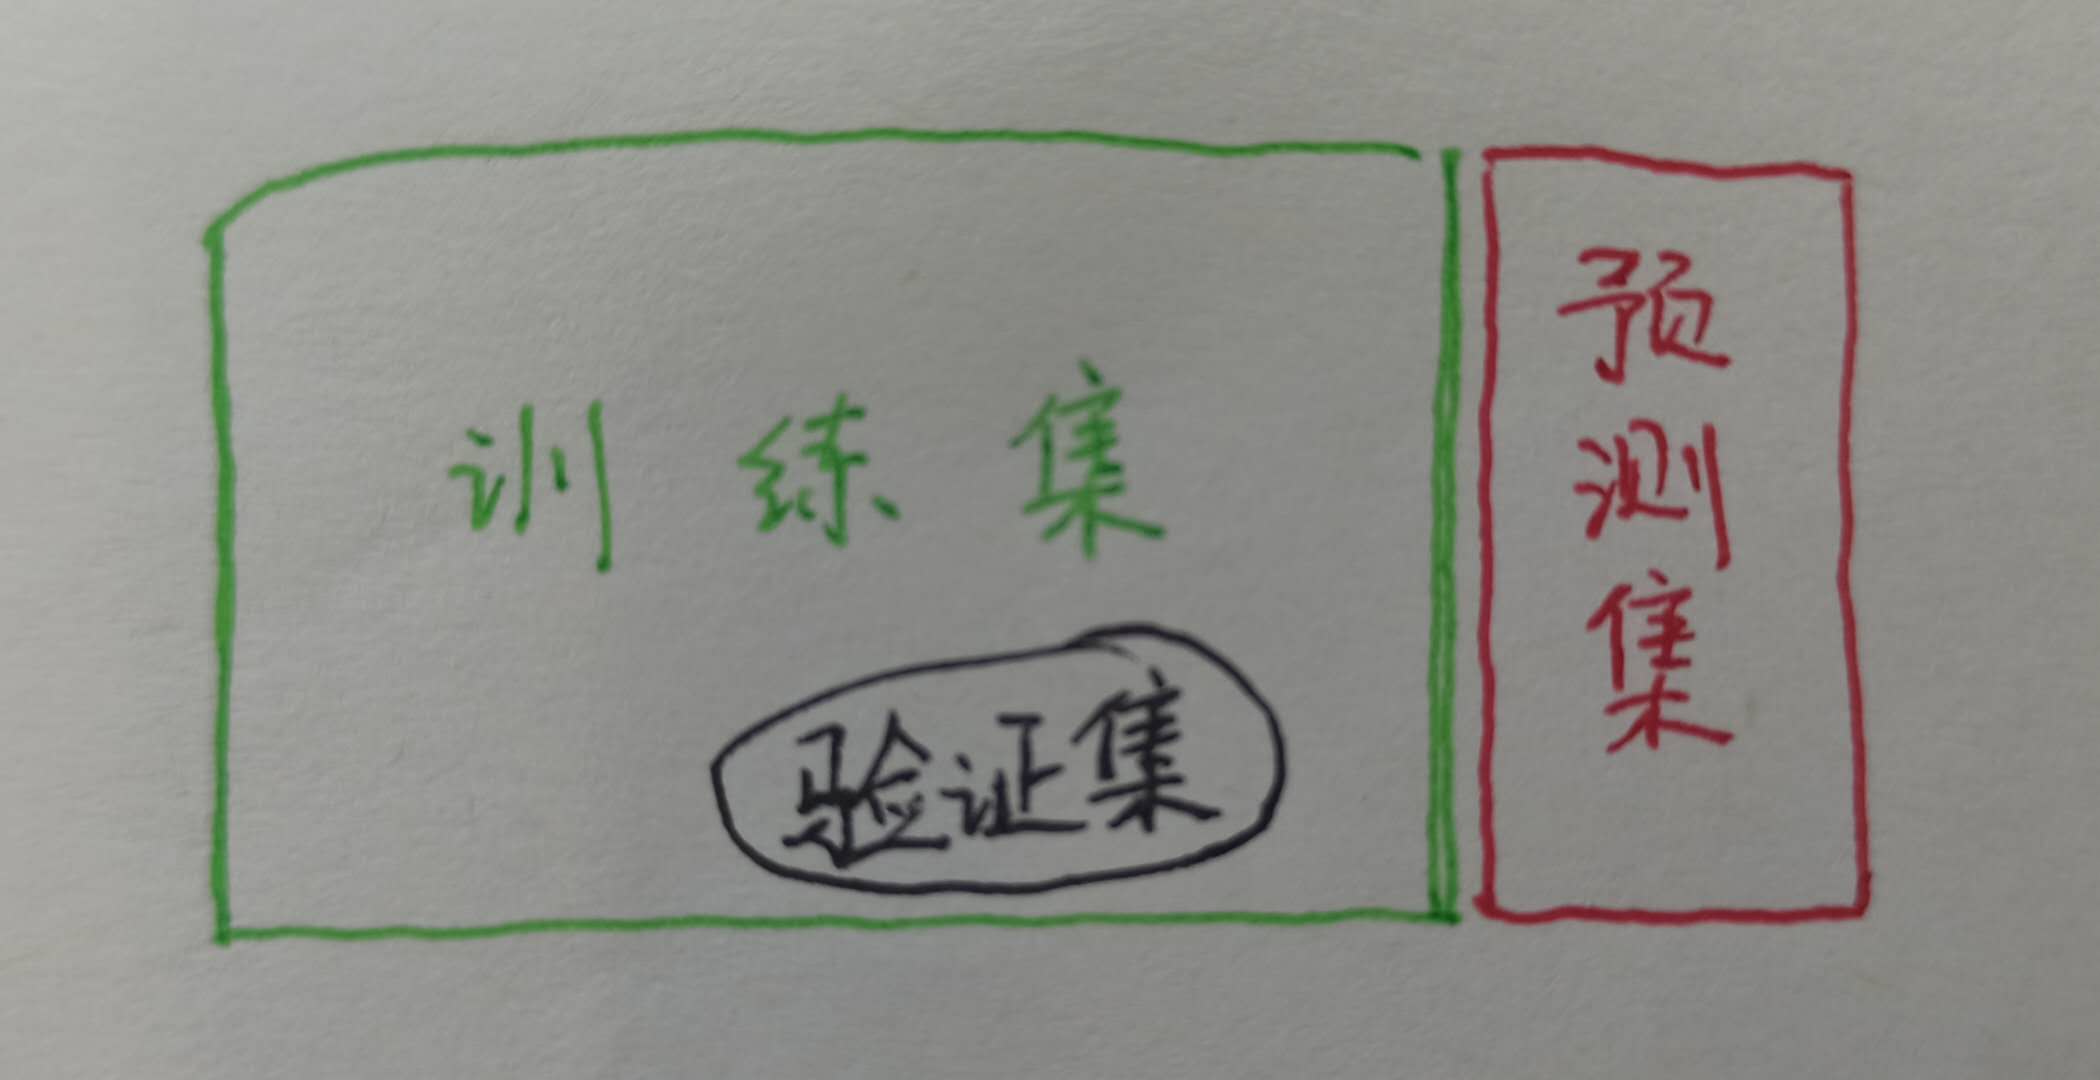 训练集
验证集
预测集